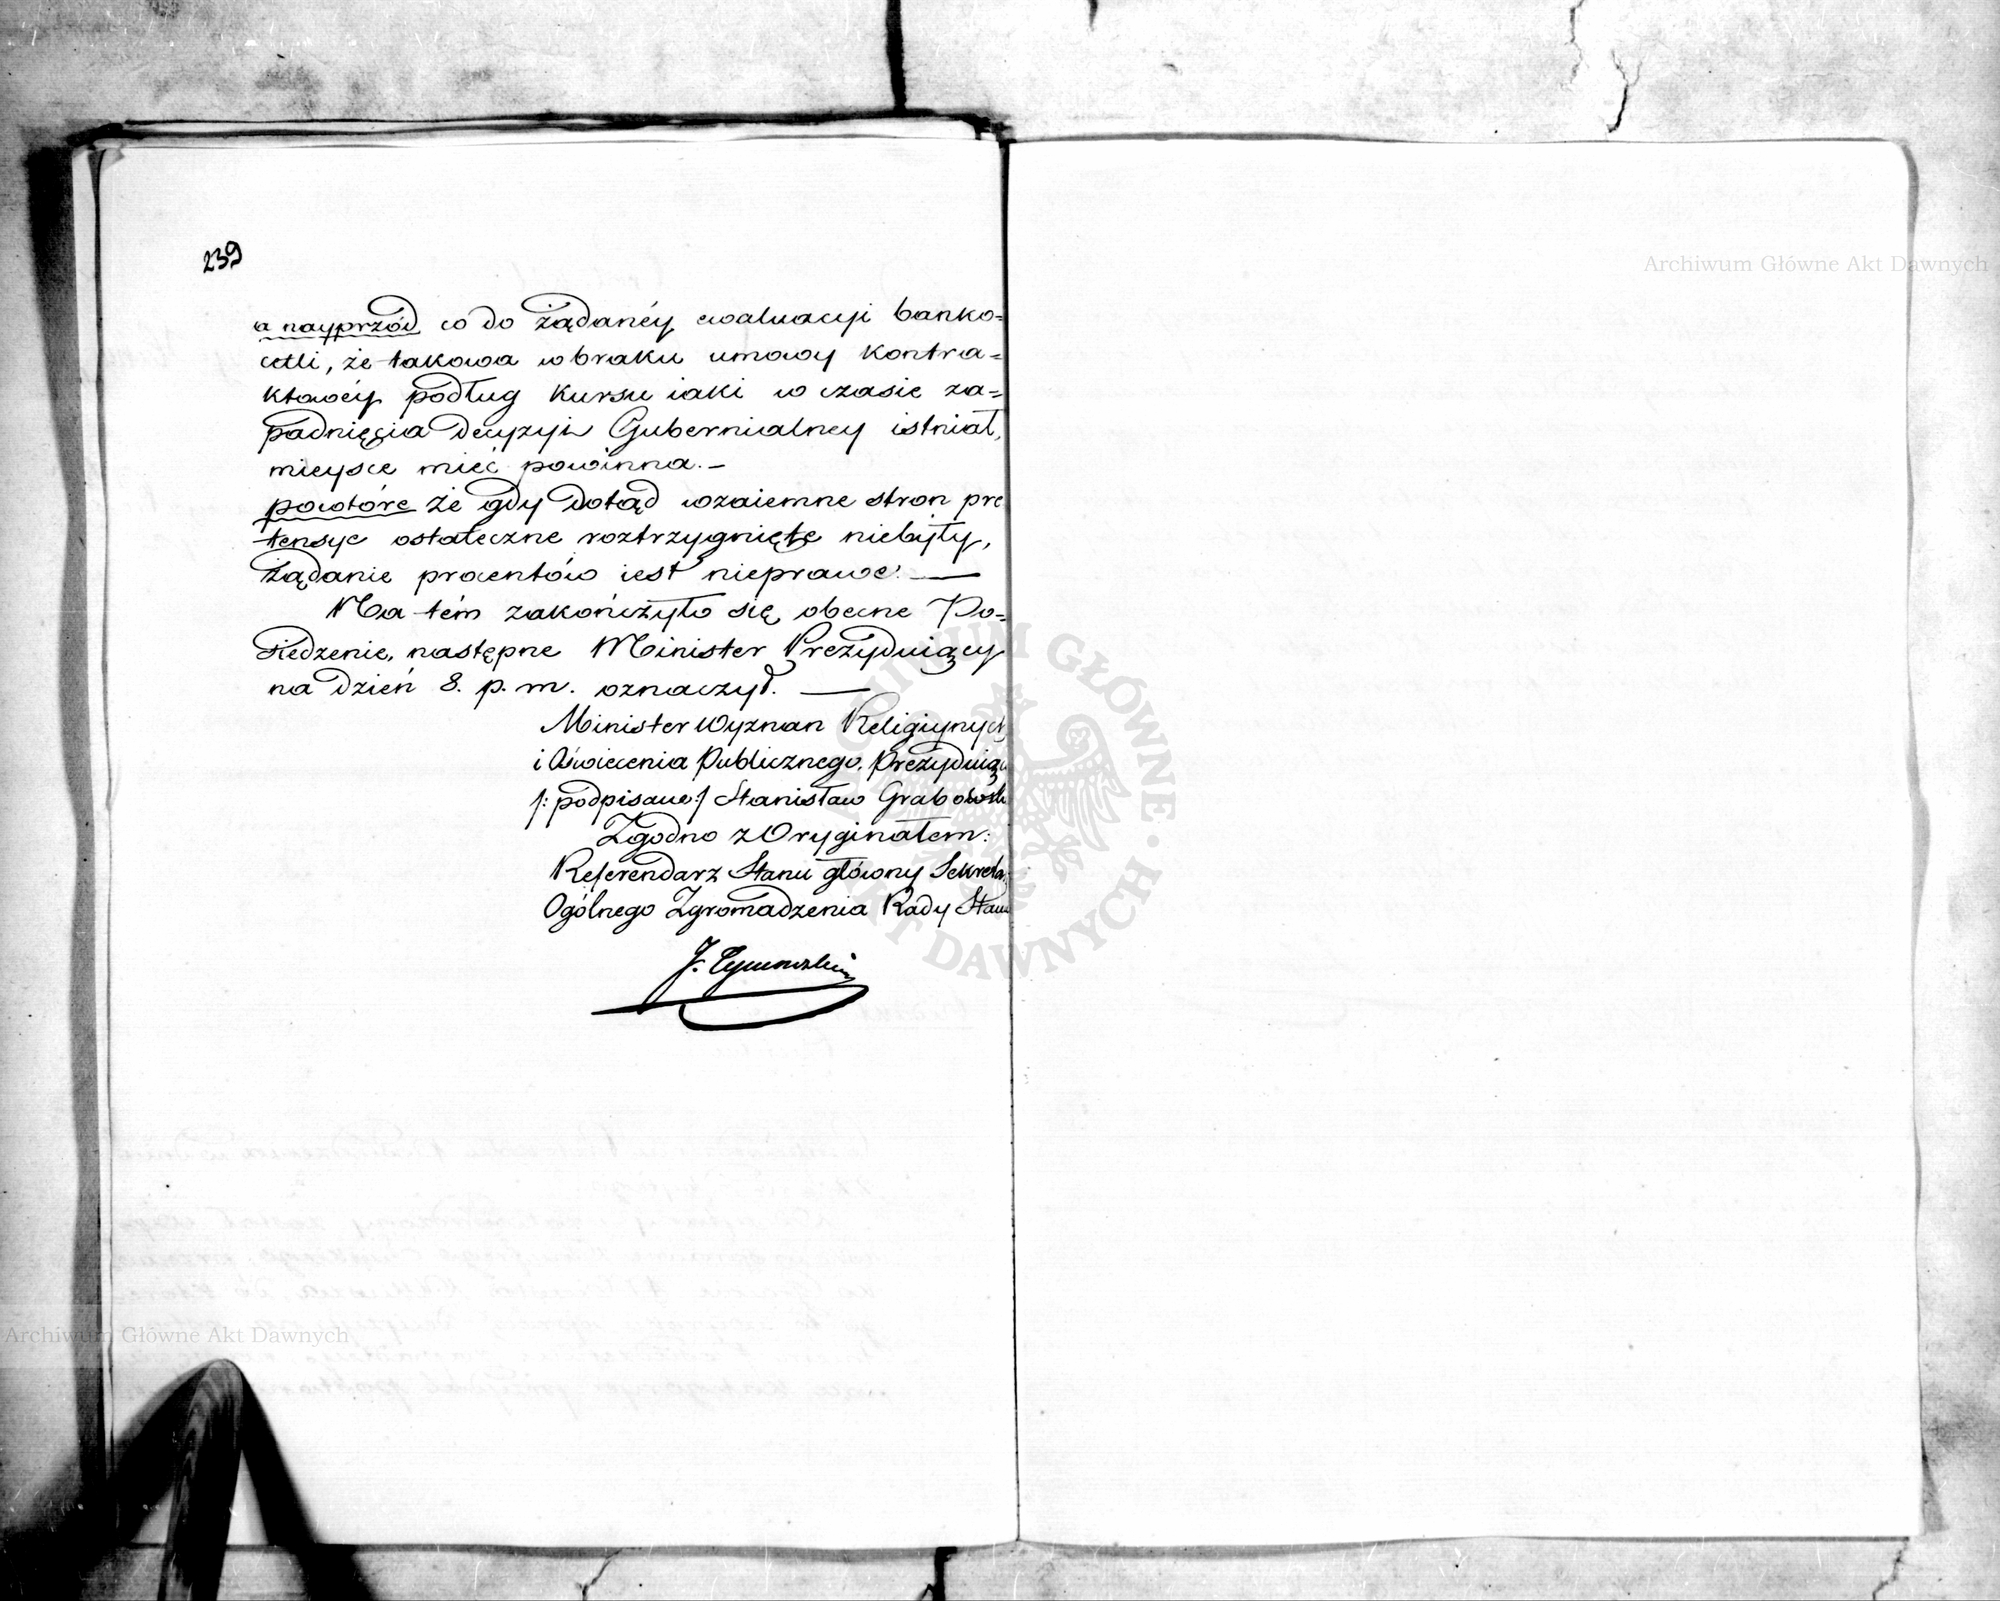 239
a nayprzód co do żądanéy ewaluacyi banko=
cetli, że takowa w braku umowy kontra=
ktowéy podług kursu iaki w czasie za=
padnięcia decyzyi Gubernialney istniał,
mieysce mieć powinna.—
powtóre że gdy dotąd wzaiemne stron pre
tensye ostateczne roztrzygnięte niebyły,
żądanie procentów iest nieprawe. —
Na tém zakończyło się obecne Po=
siedzenie, następne Minister Prezyduiący
na dzień 8. p. m. oznaczył. —
Minister Wyznan Religiynych
i Oświecenia Publicznego, Prezyduiąc
/: podpisane:/ Stanisław Grabowski
Zgodno z Oryginałem:
Referendarz Stanu główny Sekretarz
Ogólnego Zgromadzenia Rady Stanu
J. Tymowski
Archiwum Główne Akt Dawnych
ARCHIWUM GŁÓWNE · AKT DAWNYCH ·
Archiwum Główne Akt Dawnych